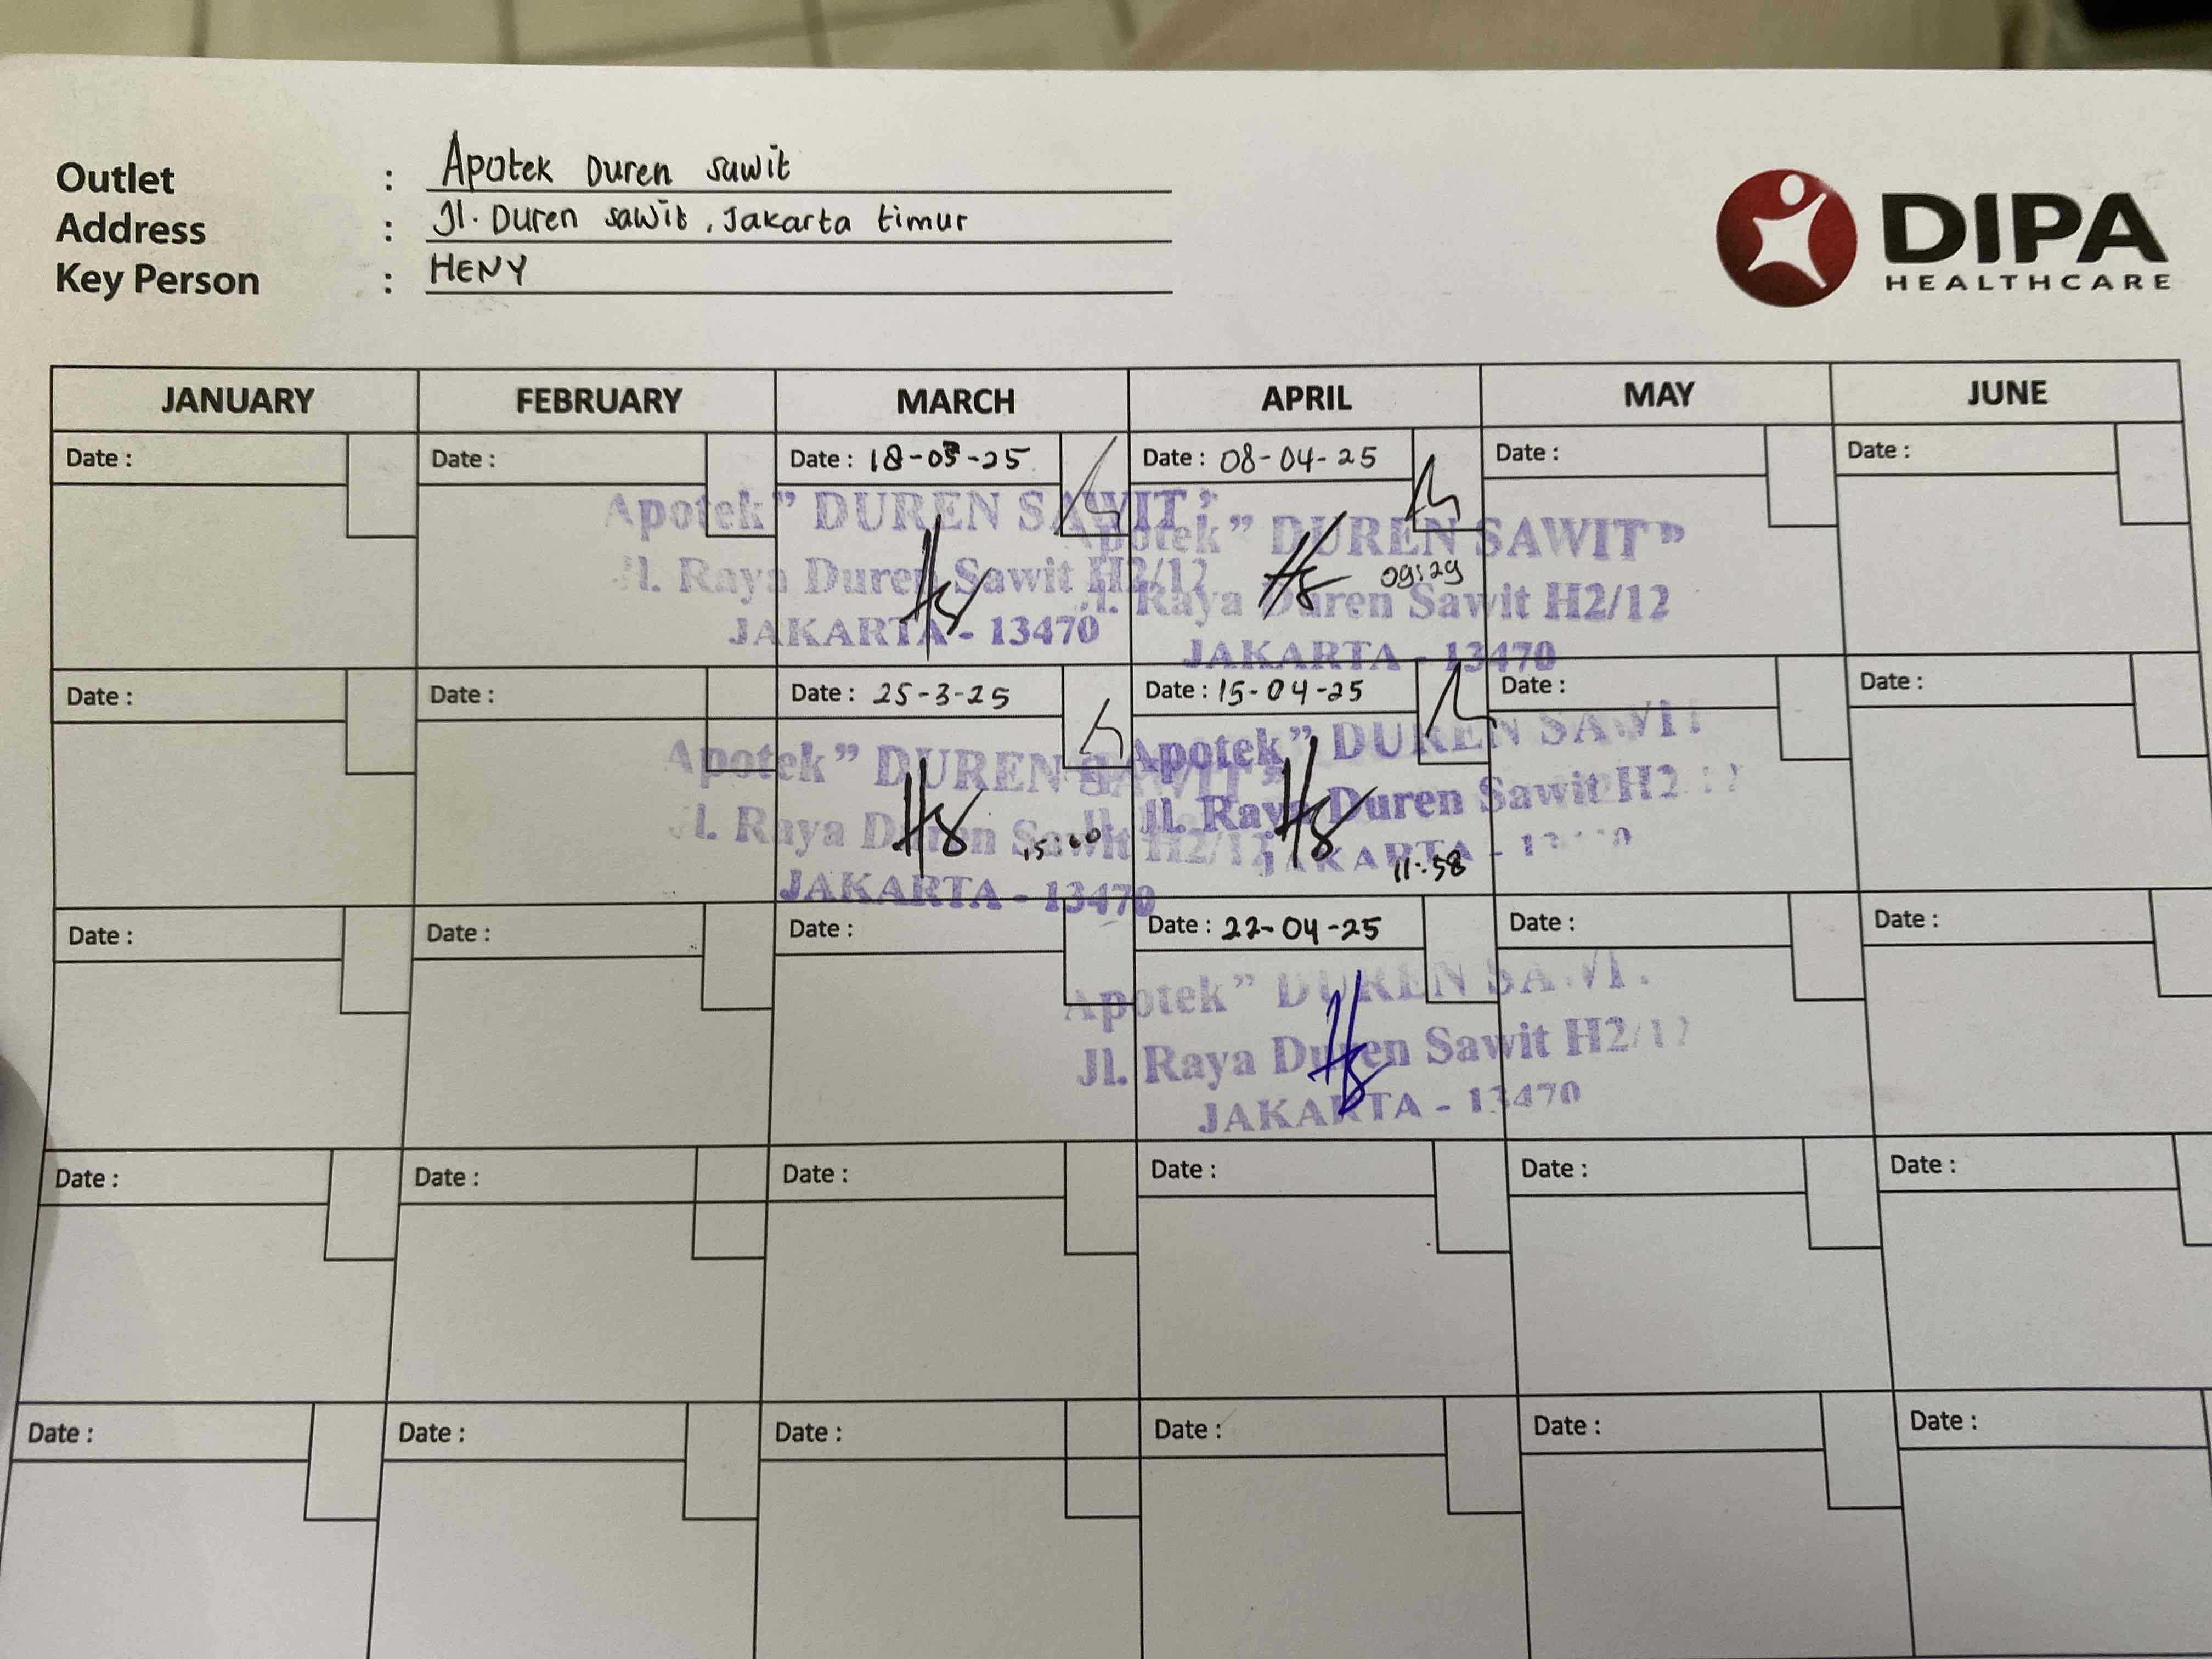 Outlet : Apotek Duren sawit
Address : Jl. Duren sawit, Jakarta timur
Key Person : HENY
DIPA
HEALTHCARE
JANUARY FEBRUARY MARCH APRIL MAY JUNE
Date : Date : Date : 18-03-25 Date : 08-04-25 Date : Date :
Apotek" DUREN SAWIT" Apotek" DUREN SAWIT"
Jl. Raya Duren Sawit H2/12 Jl. Raya Duren Sawit H2/12
09:29
JAKARTA - 13470 JAKARTA - 13470
Date : Date : Date : 25-3-25 Date : 15-04-25 Date : Date :
Apotek" DUREN SAWIT" Apotek" DUREN SAWIT
Jl. Raya Duren Sawit H2/12 Jl. Raya Duren Sawit H2
15:00 11:58
JAKARTA - 13470 JAKARTA - 13
Date : Date : Date : Date : 22-04-25 Date : Date :
Apotek" DUREN SAWI
Jl. Raya Duren Sawit H2/12
JAKARTA - 13470
Date : Date : Date : Date : Date : Date :
Date : Date : Date : Date : Date : Date :